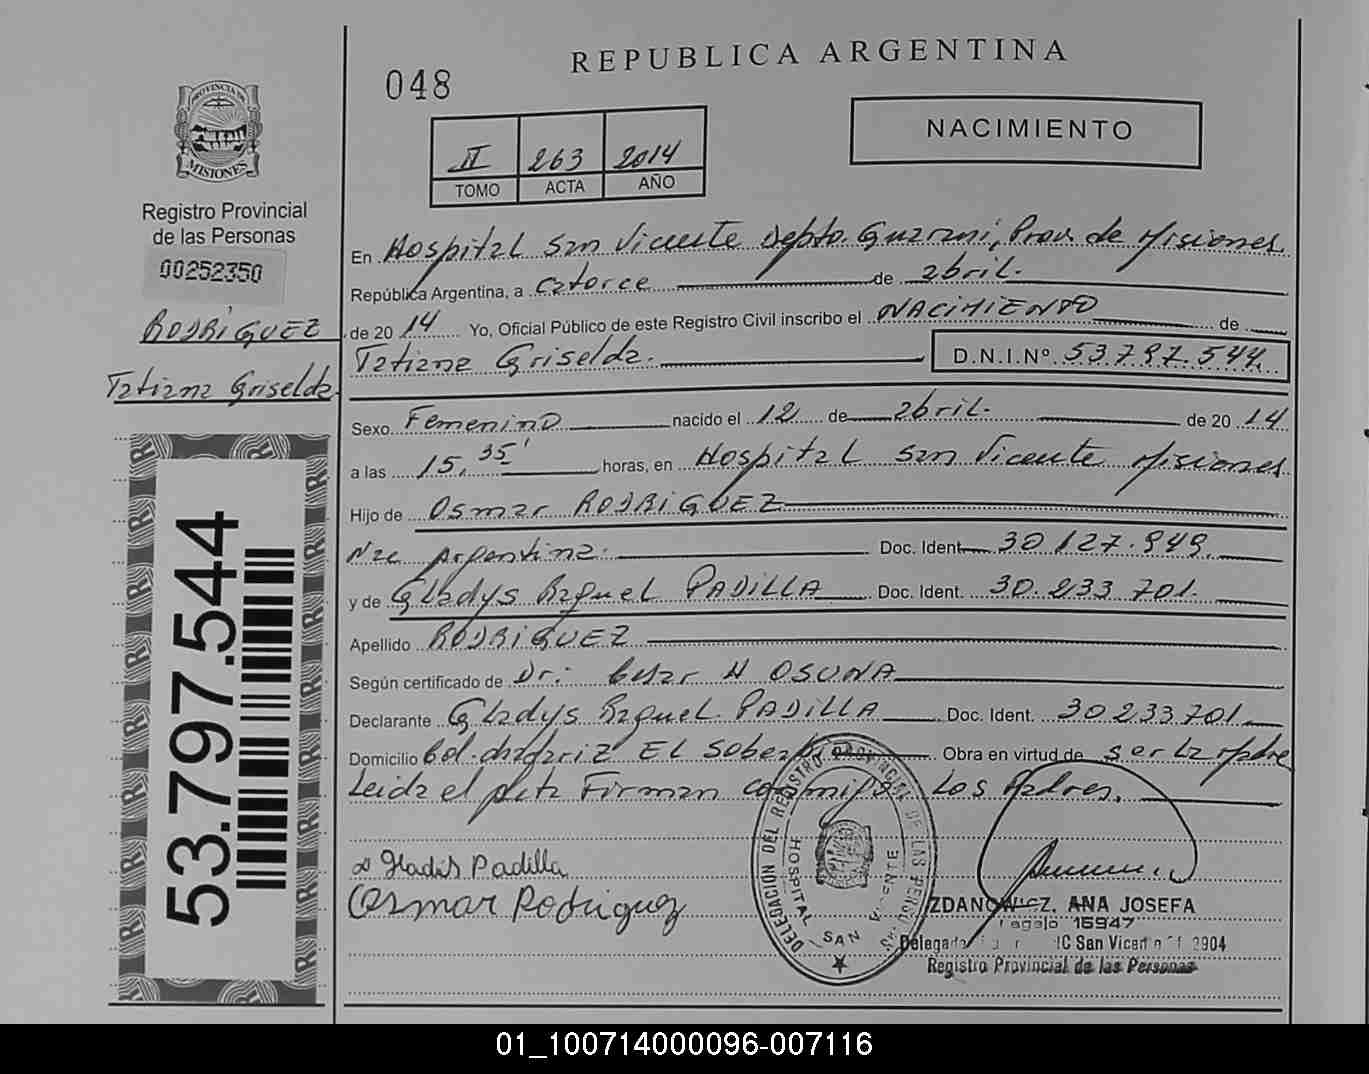 REPUBLICA ARGENTINA
048
NACIMIENTO
II 263 2014
TOMO ACTA AÑO
PROVINCIA DE
MISIONES
Registro Provincial
de las Personas
00252350
RODRIGUEZ
Tatiana Griselda
53.797.544
En Hospital San Vicente Depto. Guarani, Prov. de Misiones.
República Argentina, a catorce de abril.
de 20 14 Yo, Oficial Público de este Registro Civil inscribo el NACIMIENTO de
Tatiana Griselda. D.N.I.Nº 53.797.544
Sexo Femenino nacido el 12 de abril. de 20 14
a las 15,35' horas, en Hospital San Vicente Misiones
Hijo de Osmar RODRIGUEZ
Nac Argentina. Doc. Ident. 30 127.949.
y de Gladys Raquel PADILLA Doc. Ident. 30.233 701.
Apellido RODRIGUEZ
Según certificado de Dr. Cesar H OSUNA
Declarante Gladys Raquel PADILLA Doc. Ident. 30 233.701
Domicilio Col. El Obra en virtud de ser la Madre
Leida el Acta Firman conmigo Los Padres.
Gladis Padilla
Osmar Rodriguez
DELEGACIÓN DEL REGISTRO PROVINCIAL DE LAS PERSONAS
HOSPITAL SAN VICENTE
ZDANOWICZ, ANA JOSEFA
Legajo 15947
San Vicente 2904
Registro Provincial de las Personas
01_100714000096-007116